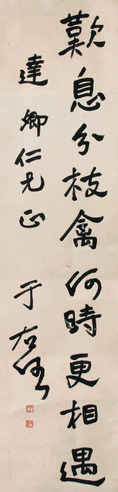 歎息分枝禽何時更相遇
達卿仁兄正
于右任